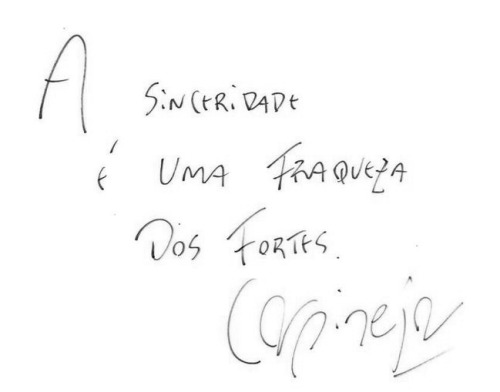 A SINCERIDADE
É UMA FRAQUEZA
DOS FORTES.
Carpinejar